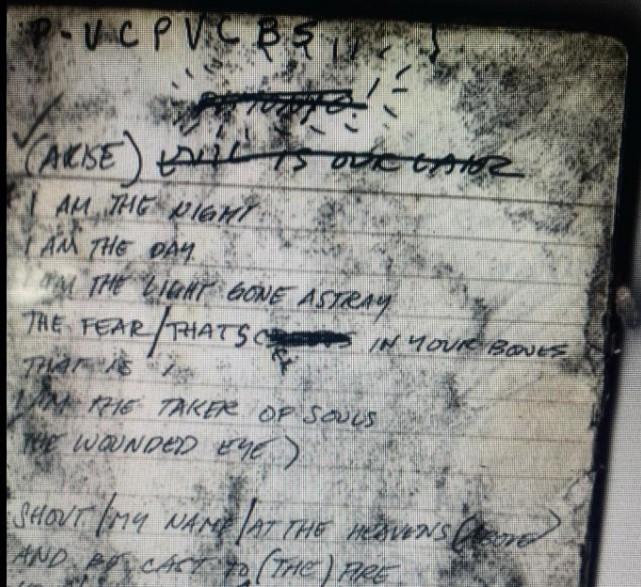 P-VCPVCBS
(ARISE) EVIL IS OUR
I AM THE NIGHT
I AM THE DAY
I AM THE LIGHT GONE ASTRAY
THE FEAR/THATS IN YOUR BONES
THAT IS I
I AM THE TAKER OF SOULS
THE WOUNDED EYE)
SHOUT/MY NAME/AT THE HEAVENS (ABOVE)
AND BE CAST TO (THE) FIRE